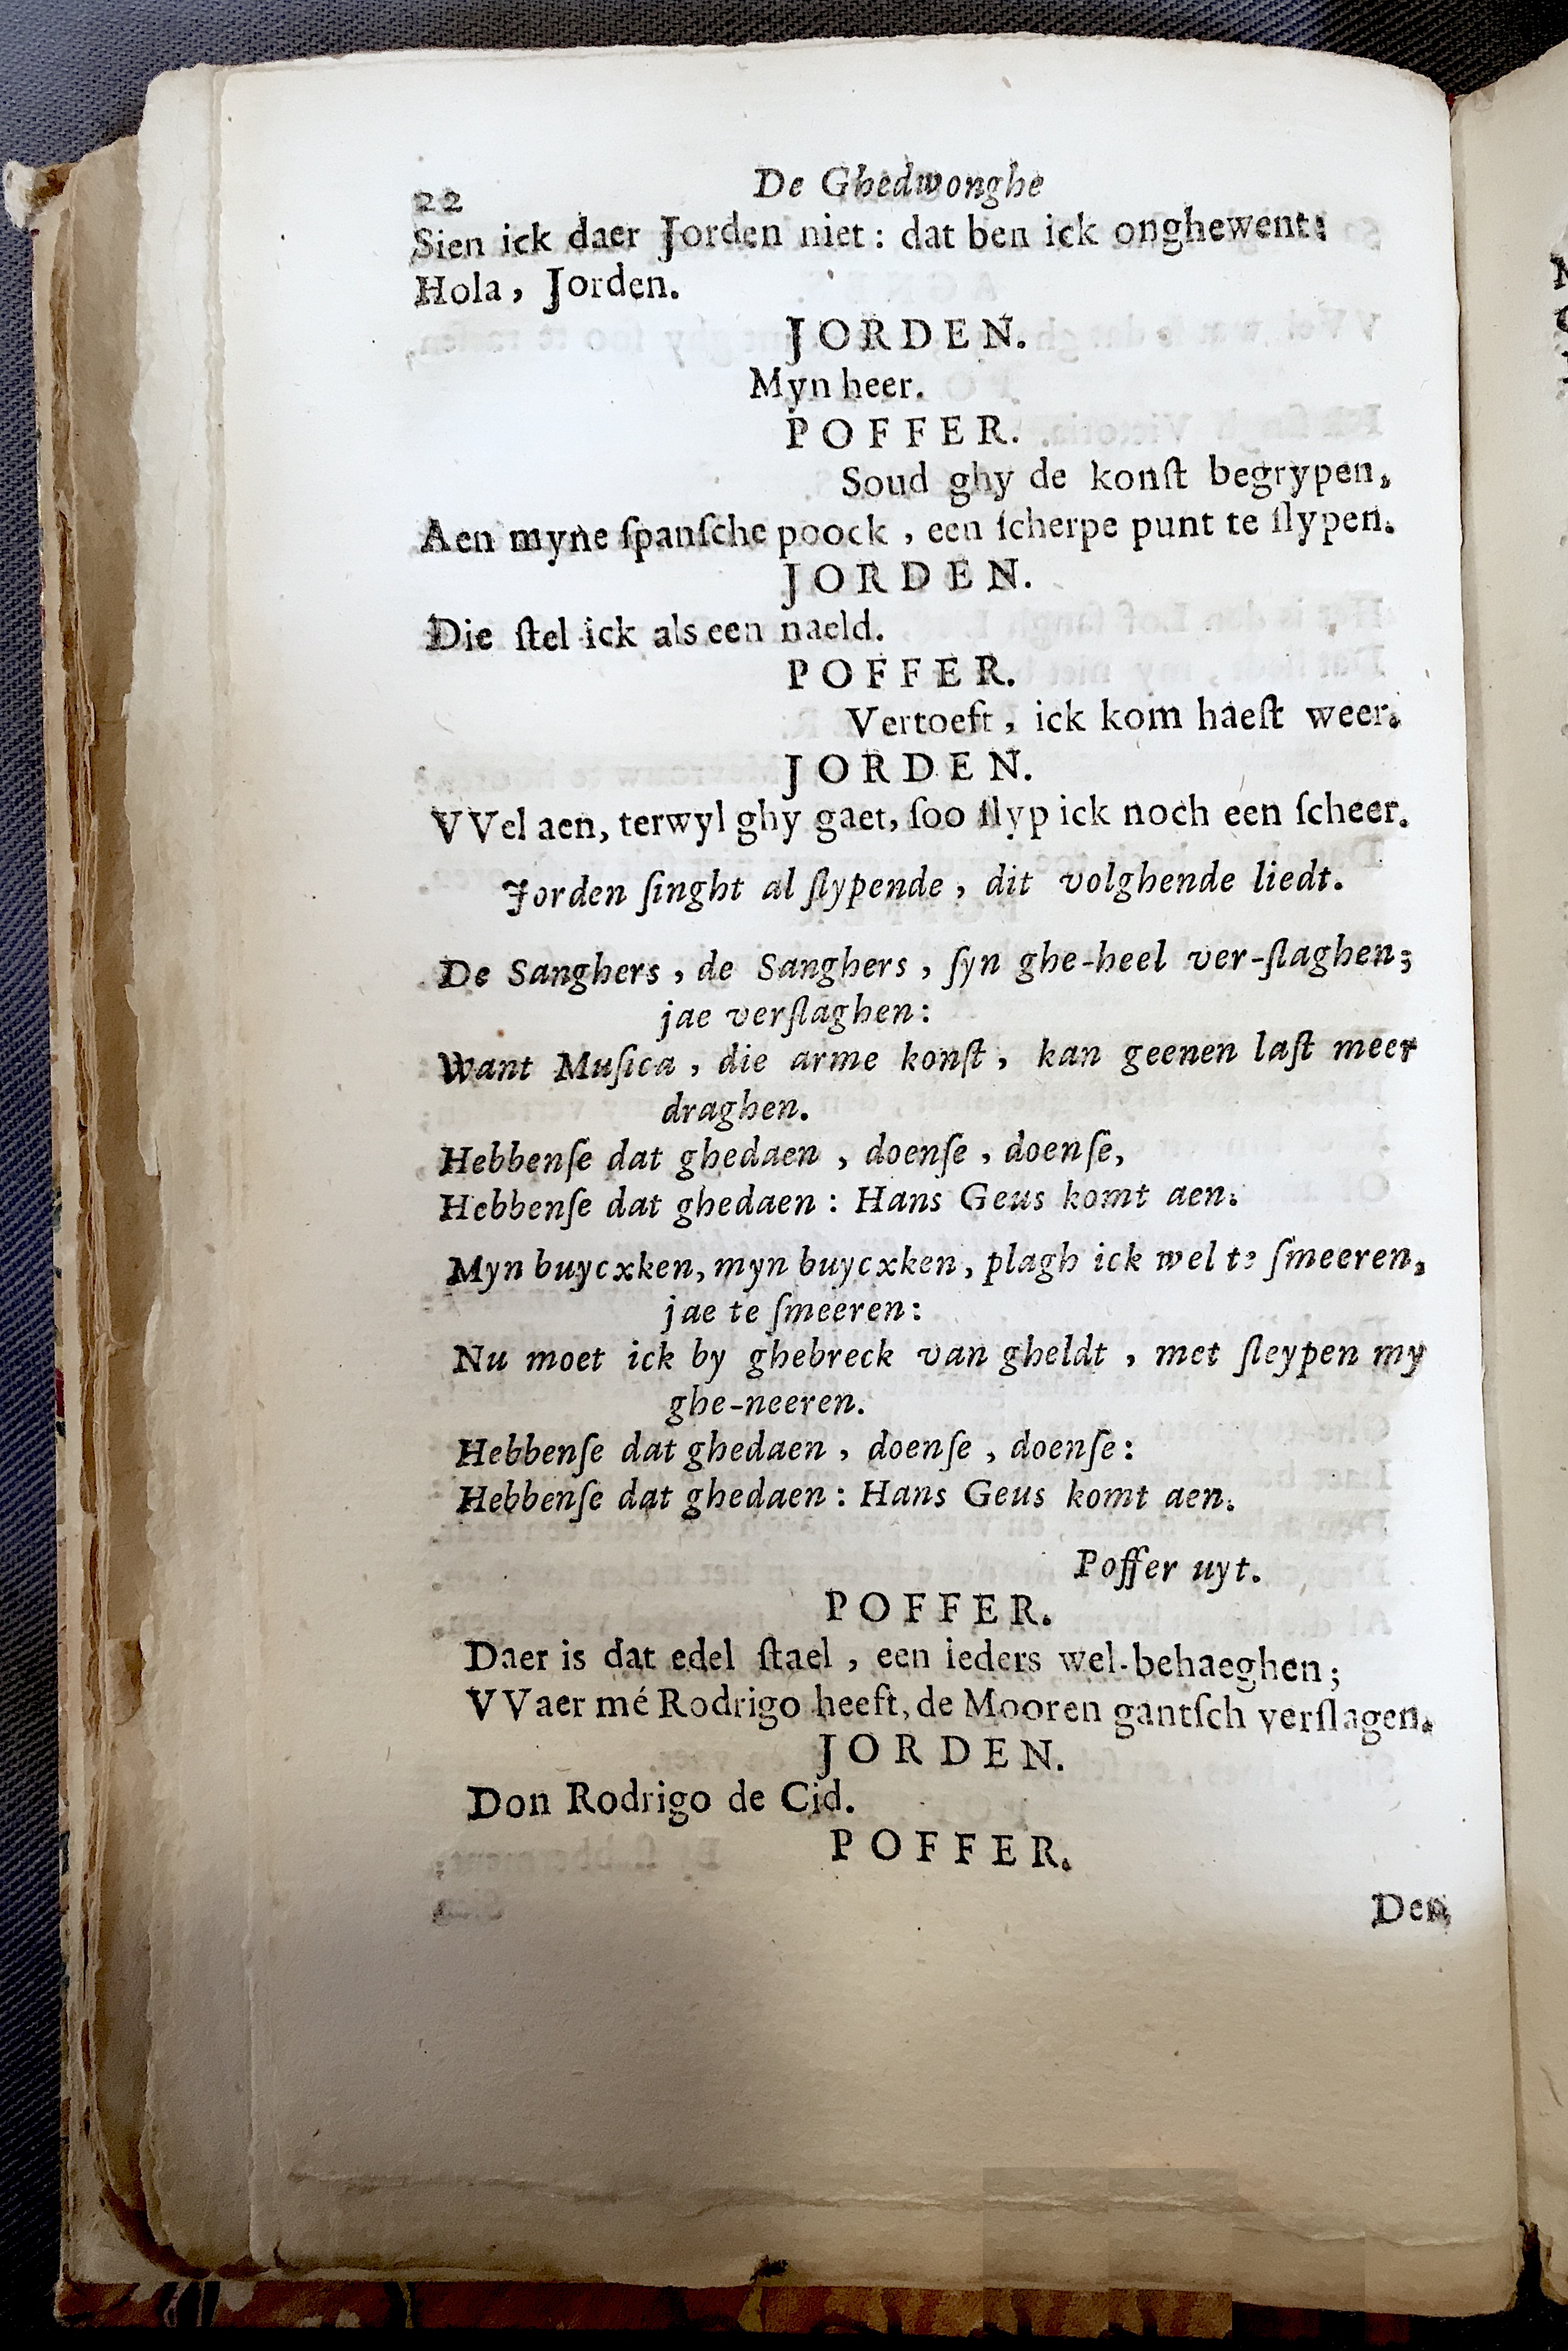 22 De Ghedwonghe
Sien ick daer Jorden niet : dat ben ick onghewent:
Hola, Jorden.
JORDEN.
Myn heer.
POFFER.
Soud ghy de konſt begrypen,
Aen myne ſpanſche poock , een ſcherpe punt te ſlypen.
JORDEN.
Die ſtel ick als een naeld.
POFFER.
Vertoeft , ick kom haeſt weer.
JORDEN.
VVel aen, terwyl ghy gaet, ſoo ſlyp ick noch een ſcheer.
Jorden ſinght al ſlypende , dit volghende liedt.
De Sanghers , de Sanghers , ſyn ghe-heel ver-ſlaghen;
jae verſlaghen:
Want Muſica , die arme konſt , kan geenen laſt meer
draghen.
Hebbenſe dat ghedaen , doenſe , doenſe,
Hebbenſe dat ghedaen : Hans Geus komt aen.
Myn buycxken, myn buycxken, plagh ick wel te ſmeeren,
jae te ſmeeren:
Nu moet ick by ghebreck van gheldt , met ſleypen my
ghe-neeren.
Hebbenſe dat ghedaen , doenſe , doenſe:
Hebbenſe dat ghedaen : Hans Geus komt aen.
Poffer uyt.
POFFER.
Daer is dat edel ſtael , een ieders wel-behaeghen;
VVaer mé Rodrigo heeft, de Mooren gantſch verſlagen.
JORDEN.
Don Rodrigo de Cid.
POFFER.
Den